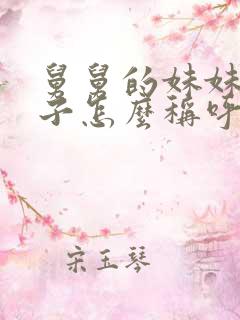 舅舅的妹妹
子怎麼稱呼
宋玉琴